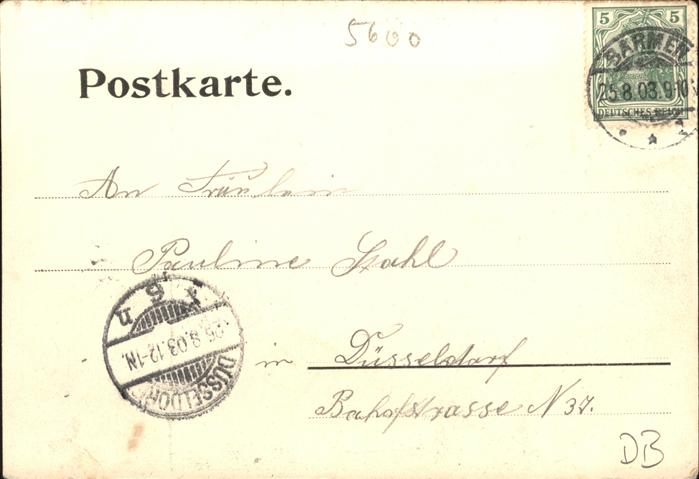 5600
Postkarte.
5 5
DEUTSCHES REICH
BARMEN
25.8.03.9-10
An Fräulein
Pauline Stahl
25.8.03.12-1N.
DÜSSELDORF
in Düsseldorf
Bahnfstrasse N 37.
DB